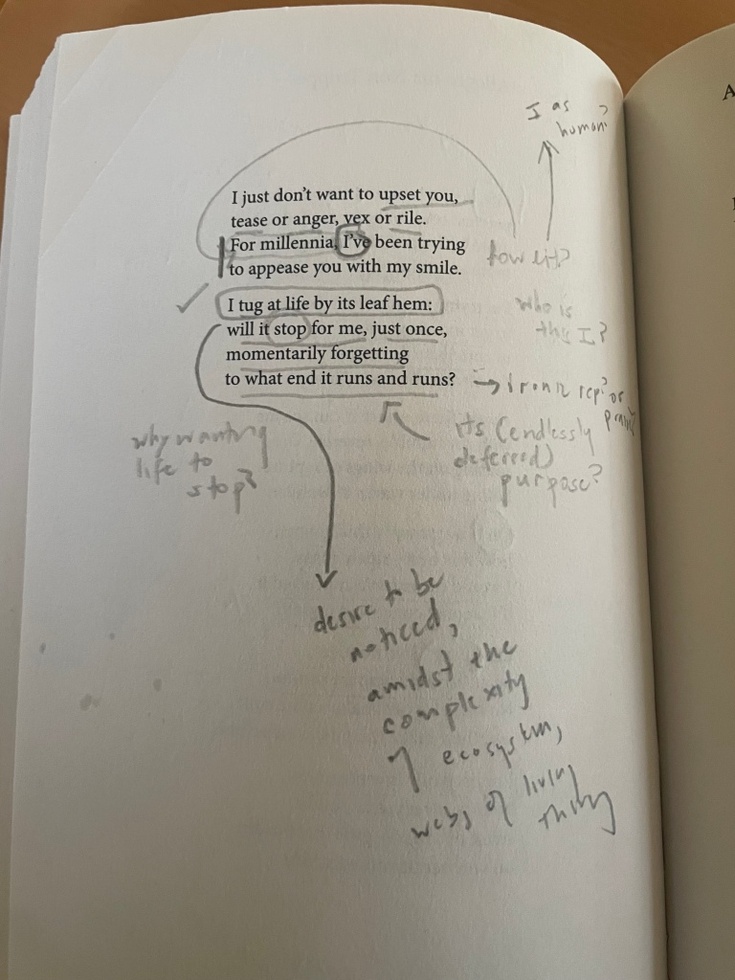 I just don't want to upset you,
tease or anger, vex or rile.
For millennia, I've been trying
to appease you with my smile.
I tug at life by its leaf hem:
will it stop for me, just once,
momentarily forgetting
to what end it runs and runs?
I as
human?
who is
this I?
→ ironic rep? or
its (endlessly
deferred)
purpose?
why wanting
life to
stop?
desire to be
noticed,
amidst the
complexity
of ecosystem,
webs of living
thing
A